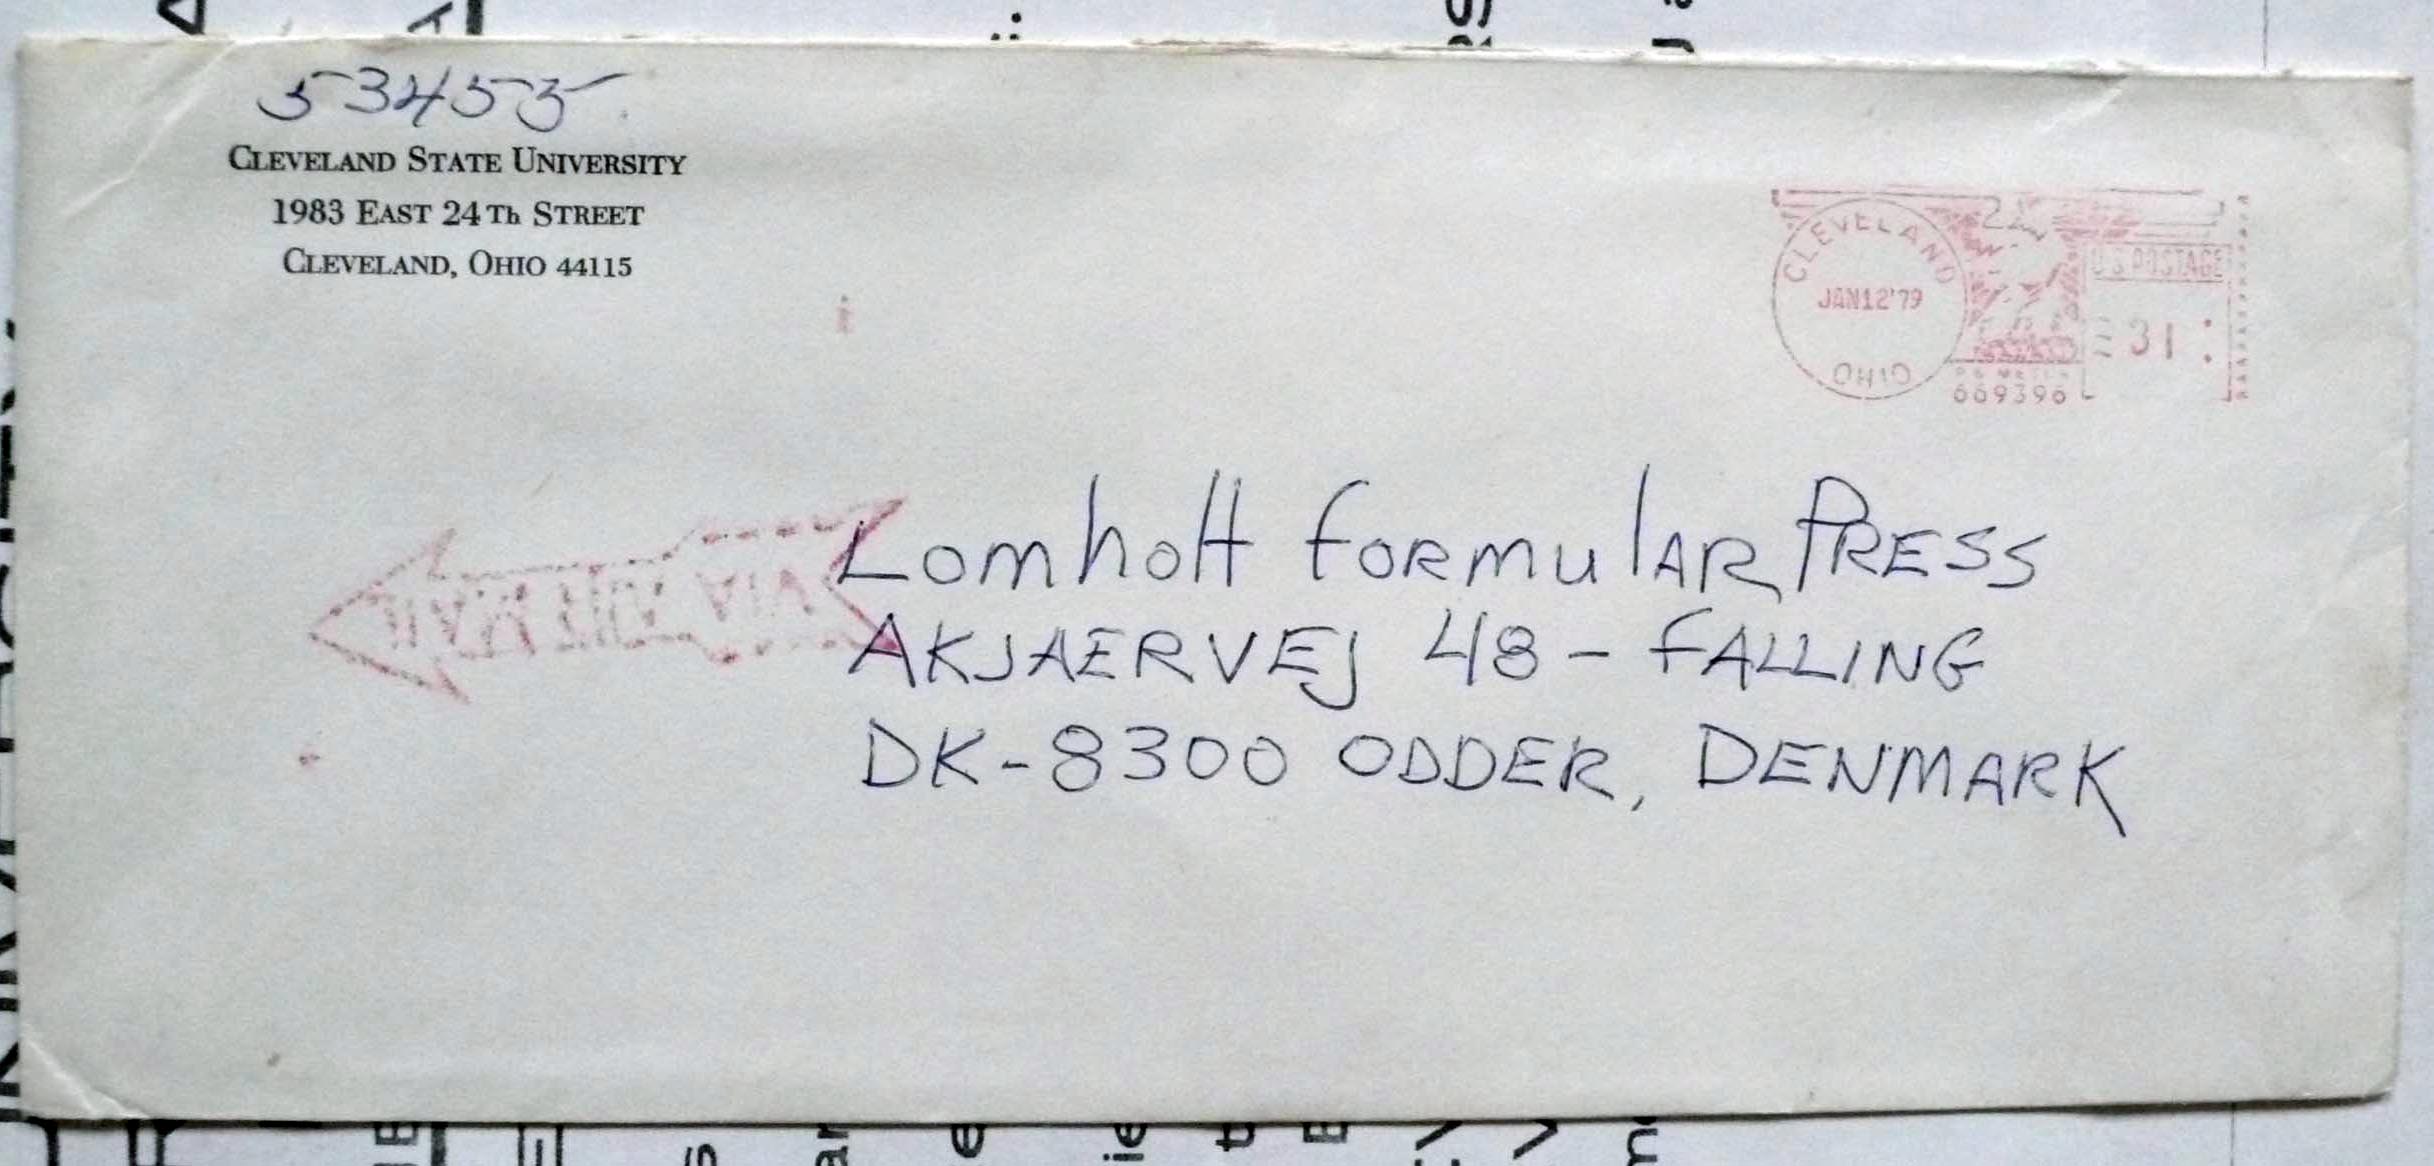 53455
CLEVELAND STATE UNIVERSITY
1983 EAST 24Th STREET
CLEVELAND, OHIO 44115
CLEVELAND
JAN12'79
OHIO
U.S. POSTAGE
31
P.B. METER
669396
VIA AIR MAIL
Lomholt formular PRESS
AKJAERVEJ 48 - FALLING
DK-8300 ODDER, DENMARK